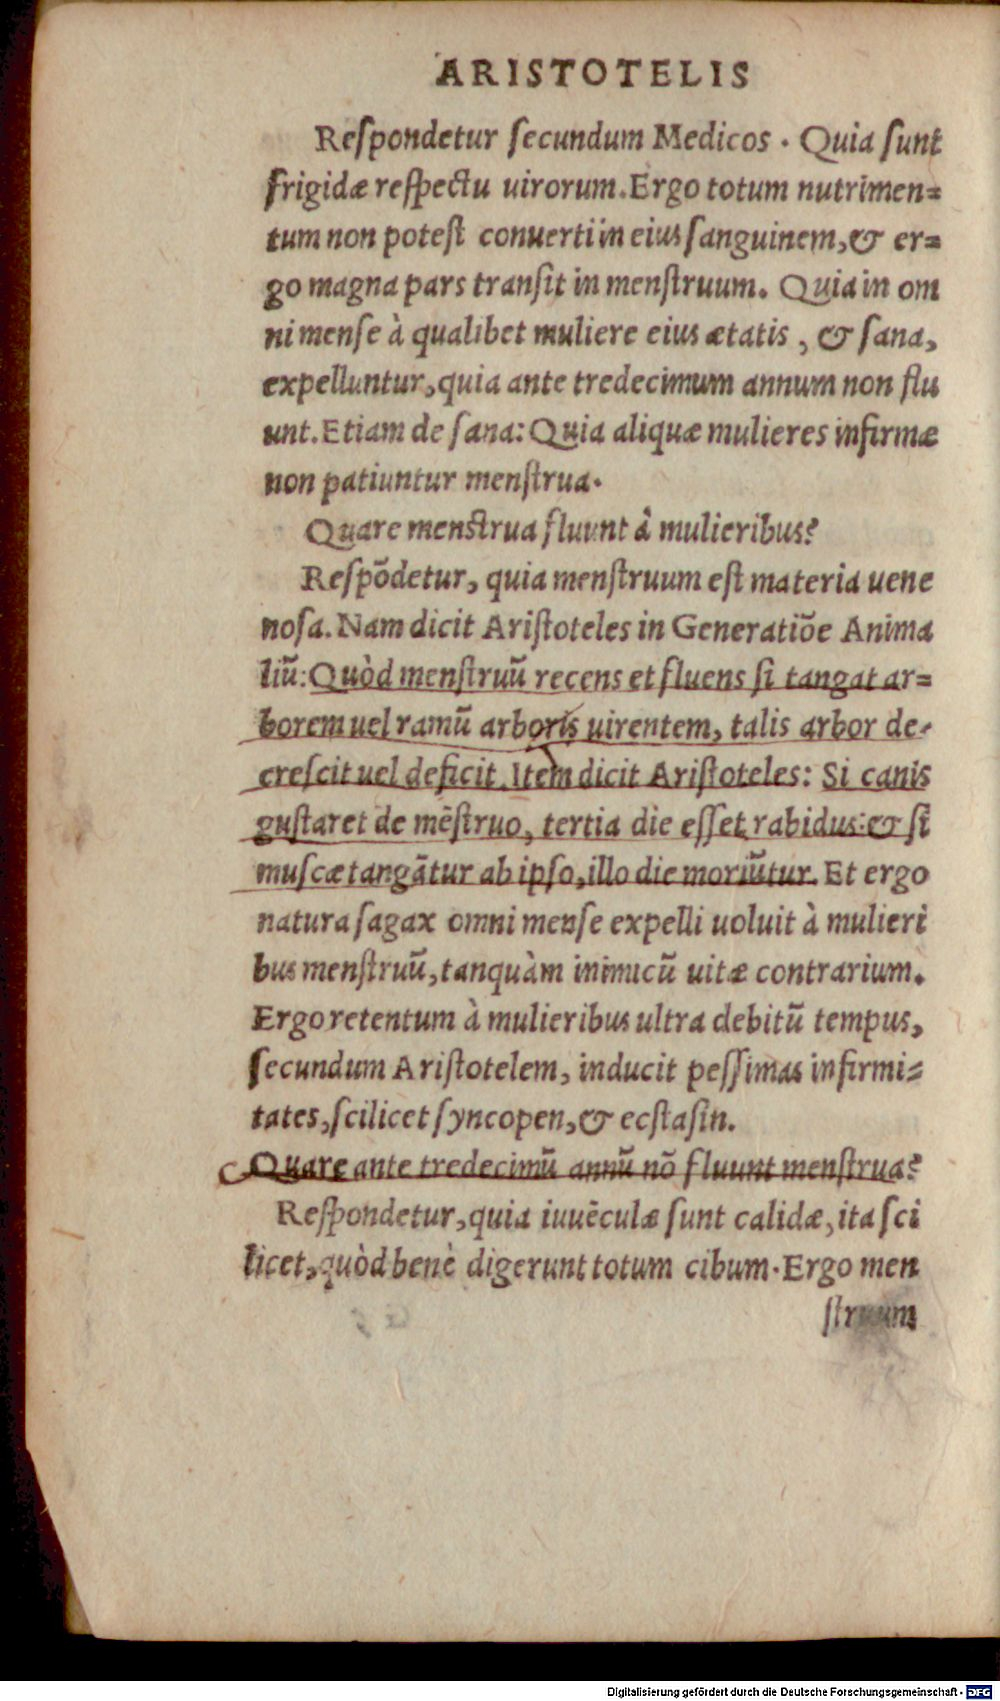 ARISTOTELIS
Reſpondetur ſecundum Medicos . Quia ſunt
frigidæ reſpectu uirorum. Ergo totum nutrimen=
tum non poteſt conuerti in eius ſanguinem, & er=
go magna pars tranſit in menſtruum. Quia in om
ni menſe à qualibet muliere eius ætatis , & ſana,
expelluntur, quia ante tredecimum annum non flu
unt. Etiam de ſana: Quia aliquæ mulieres infirmæ
non patiuntur menſtrua.
Quare menstrua fluunt à mulieribus?
Reſpõdetur, quia menſtruum eſt materia uene
noſa. Nam dicit Ariſtoteles in Generatiõe Anima
liũ: Quòd menſtruũ recens et fluens ſi tangat ar=
borem uel ramũ arboris uirentem, talis arbor de-
creſcit uel deficit. Item dicit Ariſtoteles: Si canis
guſtaret de mẽſtruo, tertia die eſſet rabidus: & ſi
muſcæ tangãtur ab ipſo, illo die moriũtur. Et ergo
natura ſagax omni menſe expelli uoluit à mulieri
bus menſtruũ, tanquàm inimicũ uitæ contrarium.
Ergo retentum à mulieribus ultra debitũ tempus,
ſecundum Ariſtotelem, inducit peſſimas infirmi=
tates, ſcilicet ſyncopen, & ecſtaſin.
Quare ante tredecimũ annũ nõ fluunt menſtrua?
Reſpondetur, quia iuuẽculæ ſunt calidæ, ita ſci
licet, quòd benè digerunt totum cibum. Ergo men
ſtruum
Digitalisierung gefördert durch die Deutsche Forschungsgemeinschaft - DFG